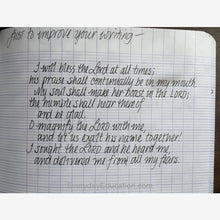 Just to improve your writing—
I will bless the Lord at all times;
his praise shall continually be in my mouth.
My soul shall make her boast in the LORD;
the humble shall hear thereof
and be glad.
O magnify the LORD with me,
and let us exalt his name together!
I sought the LORD and he heard me,
and delivered me from all my fears.
EverydayEducation.com